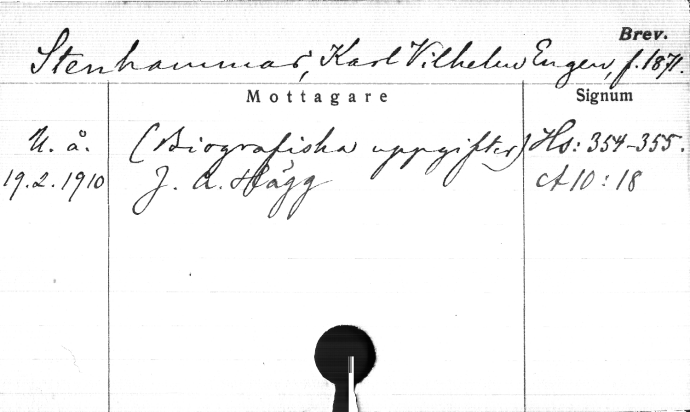 Brev.
Stenhammar, Karl Vilhelm Eugen, f. 1871.
Mottagare Signum
U. å. (Biografiska uppgifter) Hs: 354-355.
19.2.1910 J. A. Hägg A 10:18